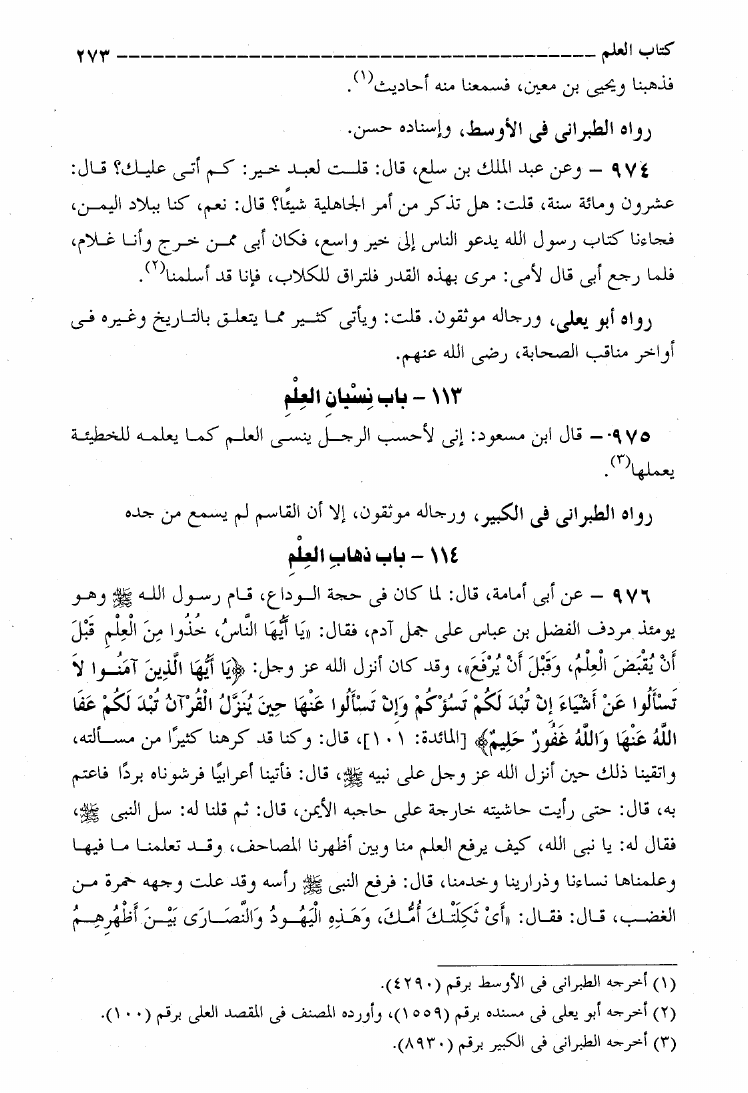 كتاب العلم ــــــــــــــــــــــــــــــــــــــــ ٢٧٣
فذهبنا ويحيى بن معين، فسمعنا منه أحاديث(١).
رواه الطبرانى فى الأوسط، وإسناده حسن.
٩٧٤ – وعن عبد الملك بن سلع، قال: قلت لعبد خير: كم أتى عليك؟ قال:
عشرون ومائة سنة، قلت: هل تذكر من أمر الجاهلية شيئًا؟ قال: نعم، كنا ببلاد اليمن،
فجاءنا كتاب رسول الله يدعو الناس إلى خير واسع، فكان أبى ممن خرج وأنا غلام،
فلما رجع أبى قال لأمى: مرى بهذه القدر فلتراق للكلاب، فإنا قد أسلمنا(٢).
رواه أبو يعلى، ورجاله موثقون. قلت: ويأتى كثير مما يتعلق بالتاريخ وغيره فى
أواخر مناقب الصحابة، رضى الله عنهم.
١١٣ – باب نِسْيانِ العِلْمِ
٩٧٥ – قال ابن مسعود: إنى لأحسب الرجل ينسى العلم كما يعلمه للخطيئة
يعملها(٣).
رواه الطبرانى فى الكبير، ورجاله موثقون، إلا أن القاسم لم يسمع من جده
١١٤ – باب ذهابِ العِلْمِ
٩٧٦ – عن أبى أمامة، قال: لما كان فى حجة الوداع، قام رسول الله ﷺ وهو
يومئذ مردف الفضل بن عباس على جمل آدم، فقال: «يَا أَيُّهَا النَّاسُ، خُذُوا مِنَ الْعِلْمِ قَبْلَ
أَنْ يُقْبَضَ الْعِلْمُ، وَقَبْلَ أَنْ يُرْفَعَ»، وقد كان أنزل الله عز وجل: ﴿يَا أَيُّهَا الَّذِينَ آمَنُوا لاَ
تَسْأَلُوا عَنْ أَشْيَاءَ إِنْ تُبْدَ لَكُمْ تَسُؤْكُمْ وَإِنْ تَسْأَلُوا عَنْهَا حِينَ يُنَزَّلُ الْقُرْآنُ تُبْدَ لَكُمْ عَفَا
اللَّهُ عَنْهَا وَاللَّهُ غَفُورٌ حَلِيمٌ﴾ [المائدة: ١٠١]، قال: وكنا قد كرهنا كثيرًا من مسألته،
واتقينا ذلك حين أنزل الله عز وجل على نبيه ﷺ، قال: فأتينا أعرابيًا فرشوناه بردًا فاعتم
به، قال: حتى رأيت حاشيته خارجة على حاجبه الأيمن، قال: ثم قلنا له: سل النبى ﷺ،
فقال له: يا نبى الله، كيف يرفع العلم منا وبين أظهرنا المصاحف، وقد تعلمنا ما فيها
وعلمناها نساءنا وذرارينا وخدمنا، قال: فرفع النبى ﷺ رأسه وقد علت وجهه حمرة من
الغضب، قال: فقال: «أَىْ ثَكِلَتْكَ أُمُّكَ، وَهَذِهِ الْيَهُودُ وَالنَّصَارَى بَيْنَ أَظْهُرِهِمُ
(١) أخرجه الطبرانى فى الأوسط برقم (٤٢٩٠).
(٢) أخرجه أبو يعلى فى مسنده برقم (١٥٥٩)، وأورده المصنف فى المقصد العلى برقم (١٠٠).
(٣) أخرجه الطبرانى فى الكبير برقم (٨٩٣٠).